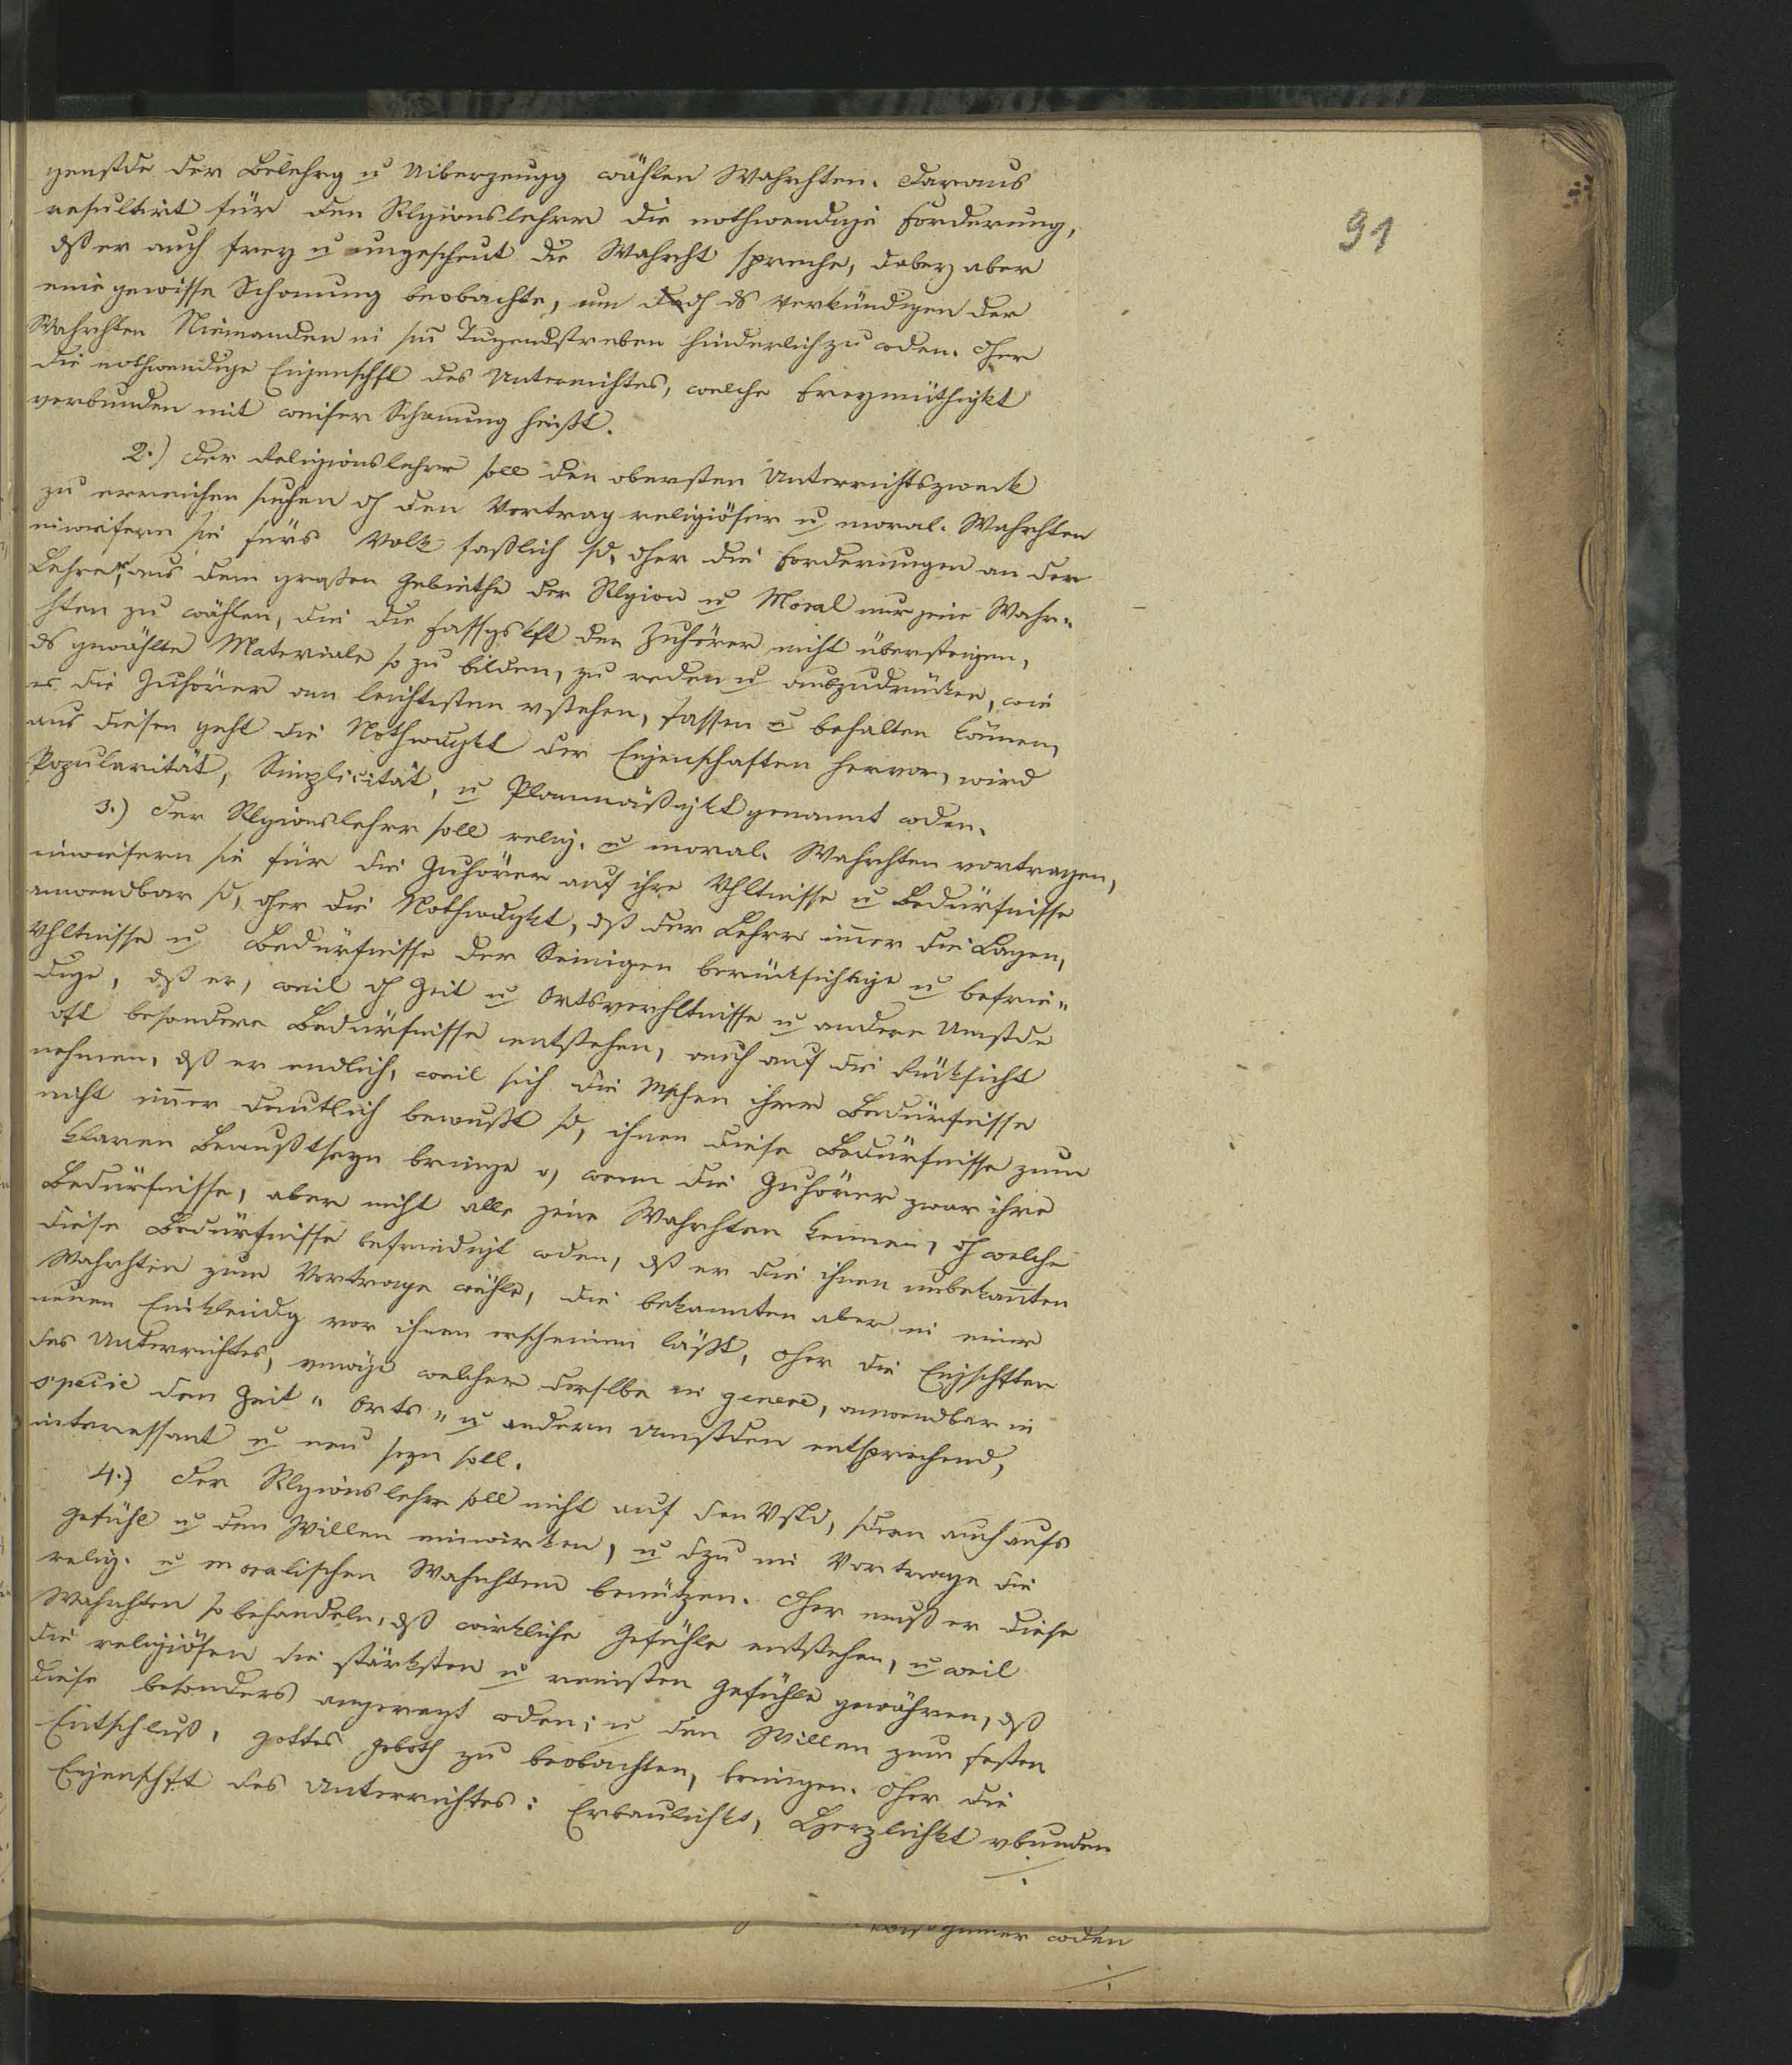 91
genstde der Belehrg u Uiberzeugg wählen Wahrhten. Daraus
resultirt für den Rlgionslehrer die nothwendige Forderung,
dß er auch frey u ungescheut die Wahrht spreche, dabey aber
eine gewisse Schonung beobachte, um dch ds Verkündigen der
Wahrhten Niemanden in sm Tugendstreben hinderlich zu wden. Dher
die nothwendige Eigenschft des Unterrichtes, welche Freymüthigkt
verbunden mit weiser Schonung heißt.
2.) Der Religionslehrer soll den obersten Unterrichtszweck
zu erreichen suchen dch den Vortrag religiöser u moral. Wahrhten
inwiefern sie fürs Volk faßlich sd, dher die Forderungen an den
Lehrer, aus dem großen Gebiethe der Rlgion u Moral nur jene Wahr„
hten zu wählen, die die Fassgskft der Zuhörer nicht übersteigen,
ds gewählte Materiale so zu bilden, zu reden u auszudrücken, wie
es die Zuhörer am leichtesten vstehen, fassen u behalten können,
aus diesen geht die Nothwdgkt der Eigenschaften hervor, wird
Popularität, Simplicität, u Planmäßigkt genannt wden.
3.) Der Rlgionslehrer soll relig. u moral. Wahrhten vortragen,
inwiefern sie für die Zuhörer auf ihre Vhltnisse u Bedürfnisse
anwendbar sd, dher die Nothwdgkt, dß der Lehrer imer die Lagen,
Vhltnisse u Bedürfnisse der Seinigen berücksichtige u befrie„
dige, dß er, weil dch Zeit u Ortsverhltnisse u andere Umstde
oft besondere Bedürfnisse entstehen, auch auf die Rücksicht
nehmen, dß er endlich, weil sich die Mschen ihrer Bedürfnisse
nicht imer deutlich bewußt sd, ihnen diese Bedürfnisse zum
klaren Bewußtseyn bringe o, wenn die Zuhörer zwar ihre
Bedürfnisse, aber nicht alle jene Wahrhten kennen, dch welche
diese Bedürfnisse befriedigt wden, dß er die ihnen unbekannten
Wahrhten zum Vortrage wähle, die bekannten aber in einer
neuen Einkleidg vor ihnen erscheinen läßt, dher die Eigschften
des Unterrichtes, vmöge welcher derselbe in genere, anwendbar in
specie den Zeit „ Orts „ u andern Umstden entsprechend,
interessant u neu seyn soll.
4.) Der Rlgionslehrer soll nicht auf den Vstd, sdern auch aufs
Gefühl u den Willen einwirken, u dzu im Vortrage die
relig. u moralischen Wahrhten benützen. Dher muß er diese
Wahrhten so behandeln, dß wirkliche Gefühle entstehen, u weil
die religiösen die stärksten u reinsten Gefühle gewähren, dß
diese besonders angeregt wden; u den Willen zum festen
Entschluß, Gottes Geboth zu beobachten, bringen. Dher die
Eigenschft des Unterrichtes: Erbaulichkt, Herzlichkt vbunden
wden